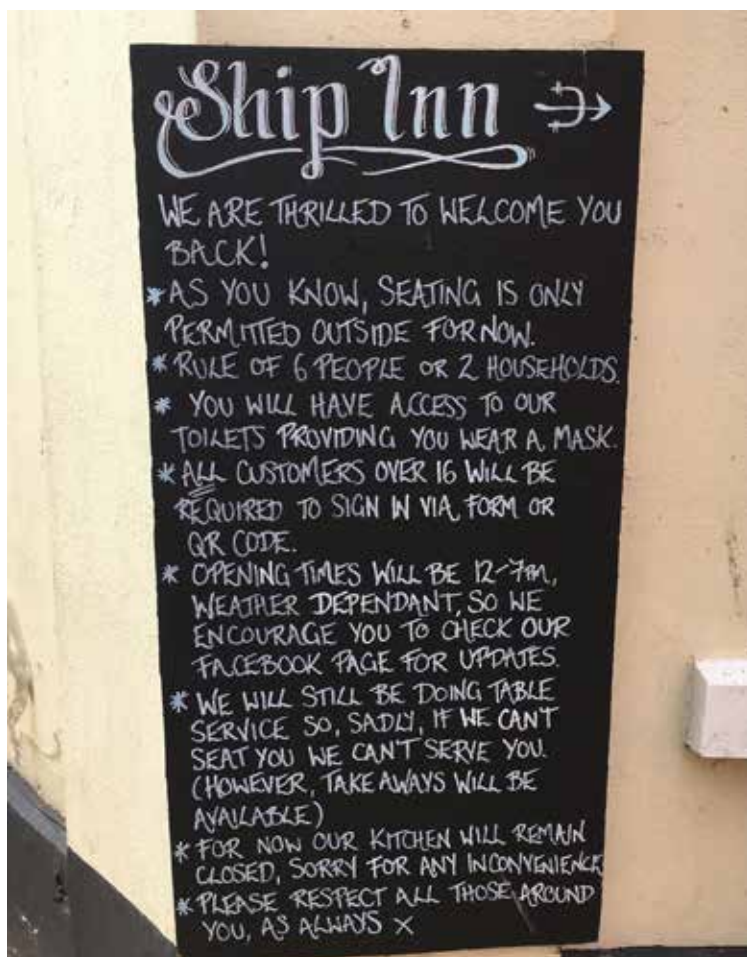 Ship Inn
WE ARE THRILLED TO WELCOME YOU
BACK!
* AS YOU KNOW, SEATING IS ONLY
PERMITTED OUTSIDE FOR NOW.
* RULE OF 6 PEOPLE OR 2 HOUSEHOLDS.
* YOU WILL HAVE ACCESS TO OUR
TOILETS PROVIDING YOU WEAR A MASK.
* ALL CUSTOMERS OVER 16 WILL BE
REQUIRED TO SIGN IN VIA FORM OR
QR CODE.
* OPENING TIMES WILL BE 12-7PM,
WEATHER DEPENDANT, SO WE
ENCOURAGE YOU TO CHECK OUR
FACEBOOK PAGE FOR UPDATES.
* WE WILL STILL BE DOING TABLE
SERVICE SO, SADLY, IF WE CAN'T
SEAT YOU WE CAN'T SERVE YOU.
(HOWEVER, TAKE AWAYS WILL BE
AVAILABLE)
* FOR NOW OUR KITCHEN WILL REMAIN
CLOSED, SORRY FOR ANY INCONVENIENCE
* PLEASE RESPECT ALL THOSE AROUND
YOU, AS ALWAYS X